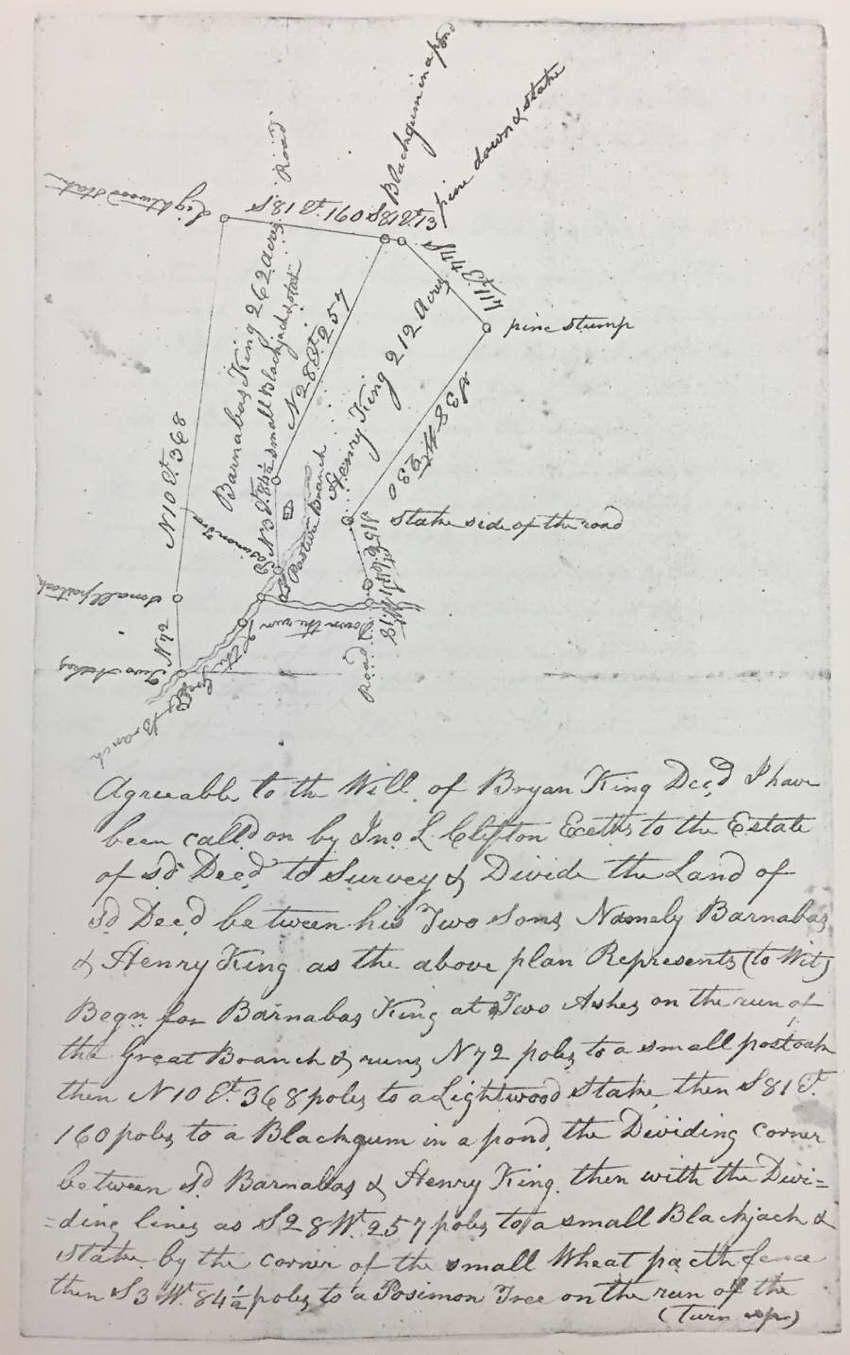 Blackgum in a pond
pine down & stake
Road
Lightwood Stake
S 81 Et. 160
S 81 Et. 13
pine stump
Barnabas King 262 Acres
N 3 Et. 84½ small Blackjack & stake
N 28 Et. 257
Henry King 212 Acres
N 10 Et. 368
N 38 Wt. 230
Stake side of the road
Pasture Branch
Small postoak
N 72
Down the run of the Great Branch
Two Ashes
Road
Agreeable to the Will of Bryan King Decd I have
been calld on by Jno. L Clifton Exctr to the Estate
of sd Decd to Survey & Divide the Land of
sd Decd between his Two Sons Namely Barnabas
& Henry King as the above plan Represents (to Wit)
Begn. for Barnabas King at Two Ashes on the run of
the Great Branch & runs N 72 poles to a small postoak
then N 10 Et. 368 poles to a Lightwood Stake then S 81 Et.
160 poles to a Blackgum in a pond the Dividing corner
between sd Barnabas & Henry King then with the Divi=
=ding lines as S 28 Wt. 257 poles to a small Blackjack &
stake by the corner of the small Wheat patch fence
then S 3 Wt. 84½ poles to a Posimon Tree on the run of the
(Turn up)